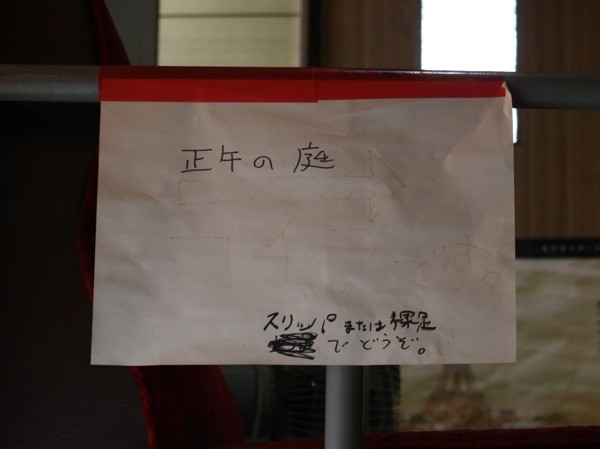 正午の庭
コチラです。
スリッパまたは裸足
でどうぞ。